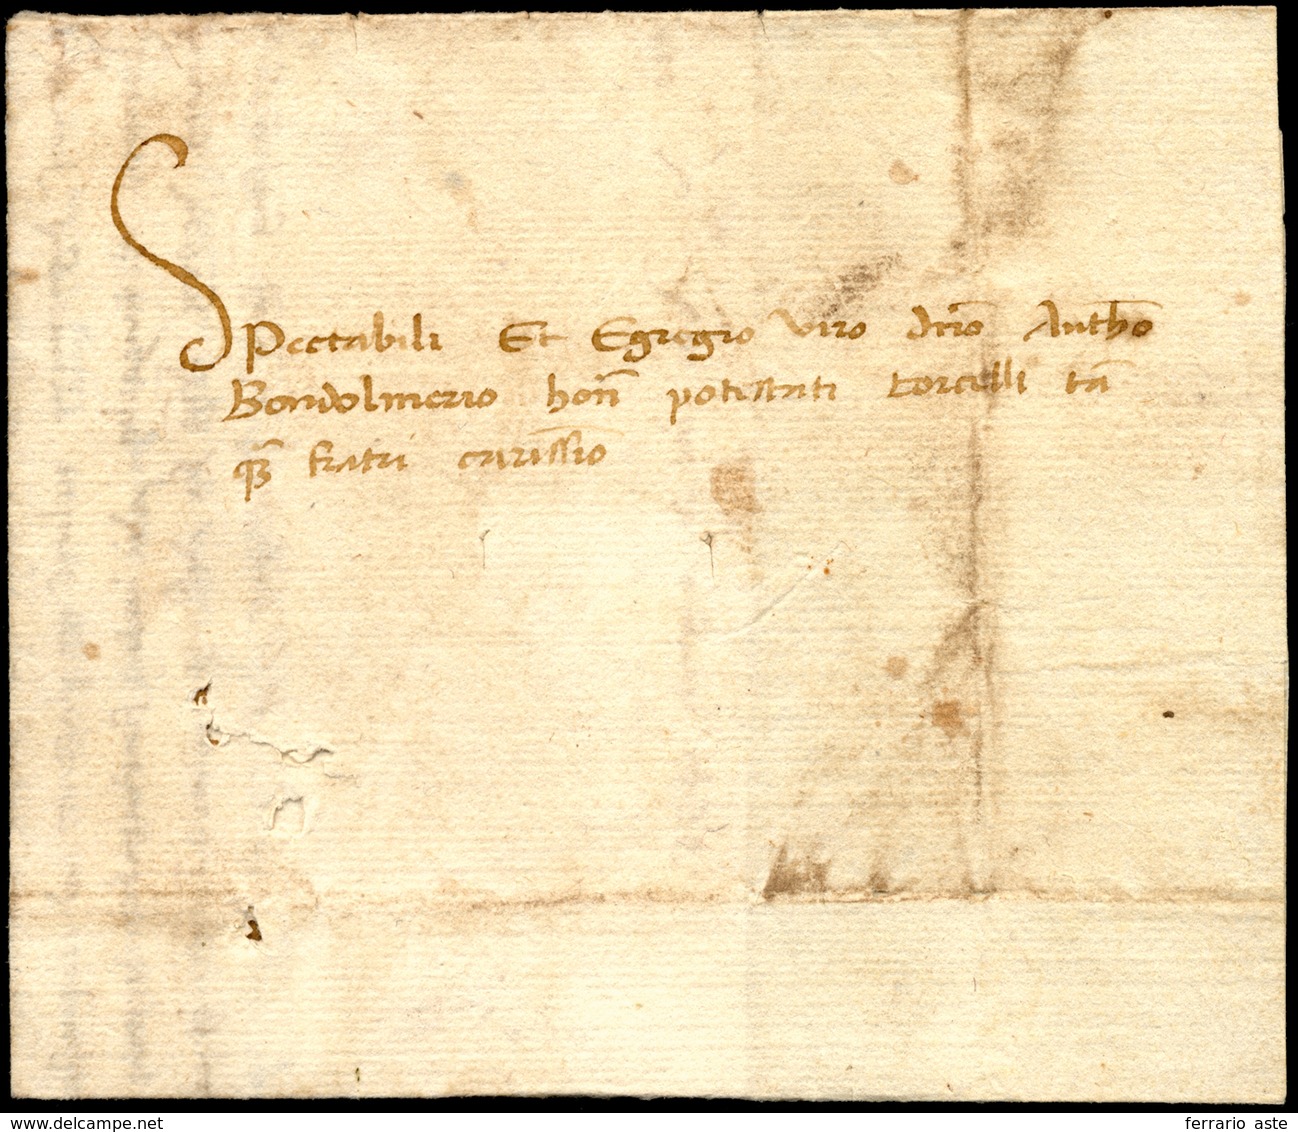 SPectabili Et Egregio viro dno Antho
Bondolmerio hon potestati torcelli ta
q fratri carissio
ferrario aste